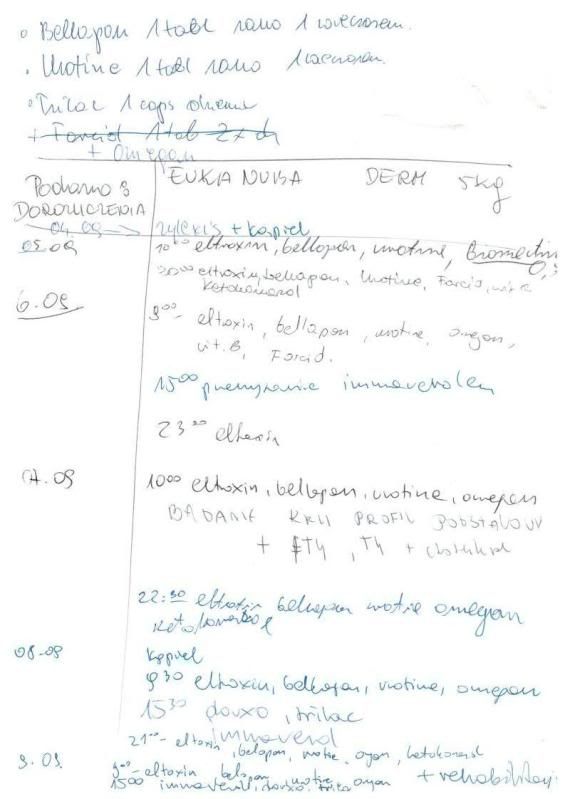 • Bellapan 1 tabl rano 1 wieczorem.
• Urotine 1 tabl rano 1 wieczorem.
• Trilac 1 caps dziennie
+ Forcid 1 tab 2x d
+ Omegan
EUKANUBA DERM 5kg
Podano 3
DOROWICZENIA
04.09 → zylexis + kąpiel
05.09 10⁰⁰ eltroxin, bellapan, urotine, Biomectin 0,3
20⁰⁰ eltroxin, bellapan, Urotine, Forcid,
Ketokonazol
6.09 9⁰⁰- eltoxin, bellapan, urotine, omegan,
vit. B, Forcid.
15⁰⁰ przemywanie immaverolem
23⁰⁰ eltroxin
7.09 10⁰⁰ eltroxin, bellapan, urotine, omegan
BADANIE KRWI PROFIL PODSTAWOWY
+ fT4, T4 + cholesterol
22:30 eltroxin bellapan urotine omegan
Ketokonazol
08.09 Kąpiel
9³⁰ eltroxin, bellapan, urotine, omegan
15³⁰ douxo, trilac
immaverol
21⁰⁰- eltoxin, belapan, urotine, ketokonazol
9.09 9⁰⁰- eltoxin belapan urotine + rehabilitacj
15⁰⁰ immaverol, douxo, trilac